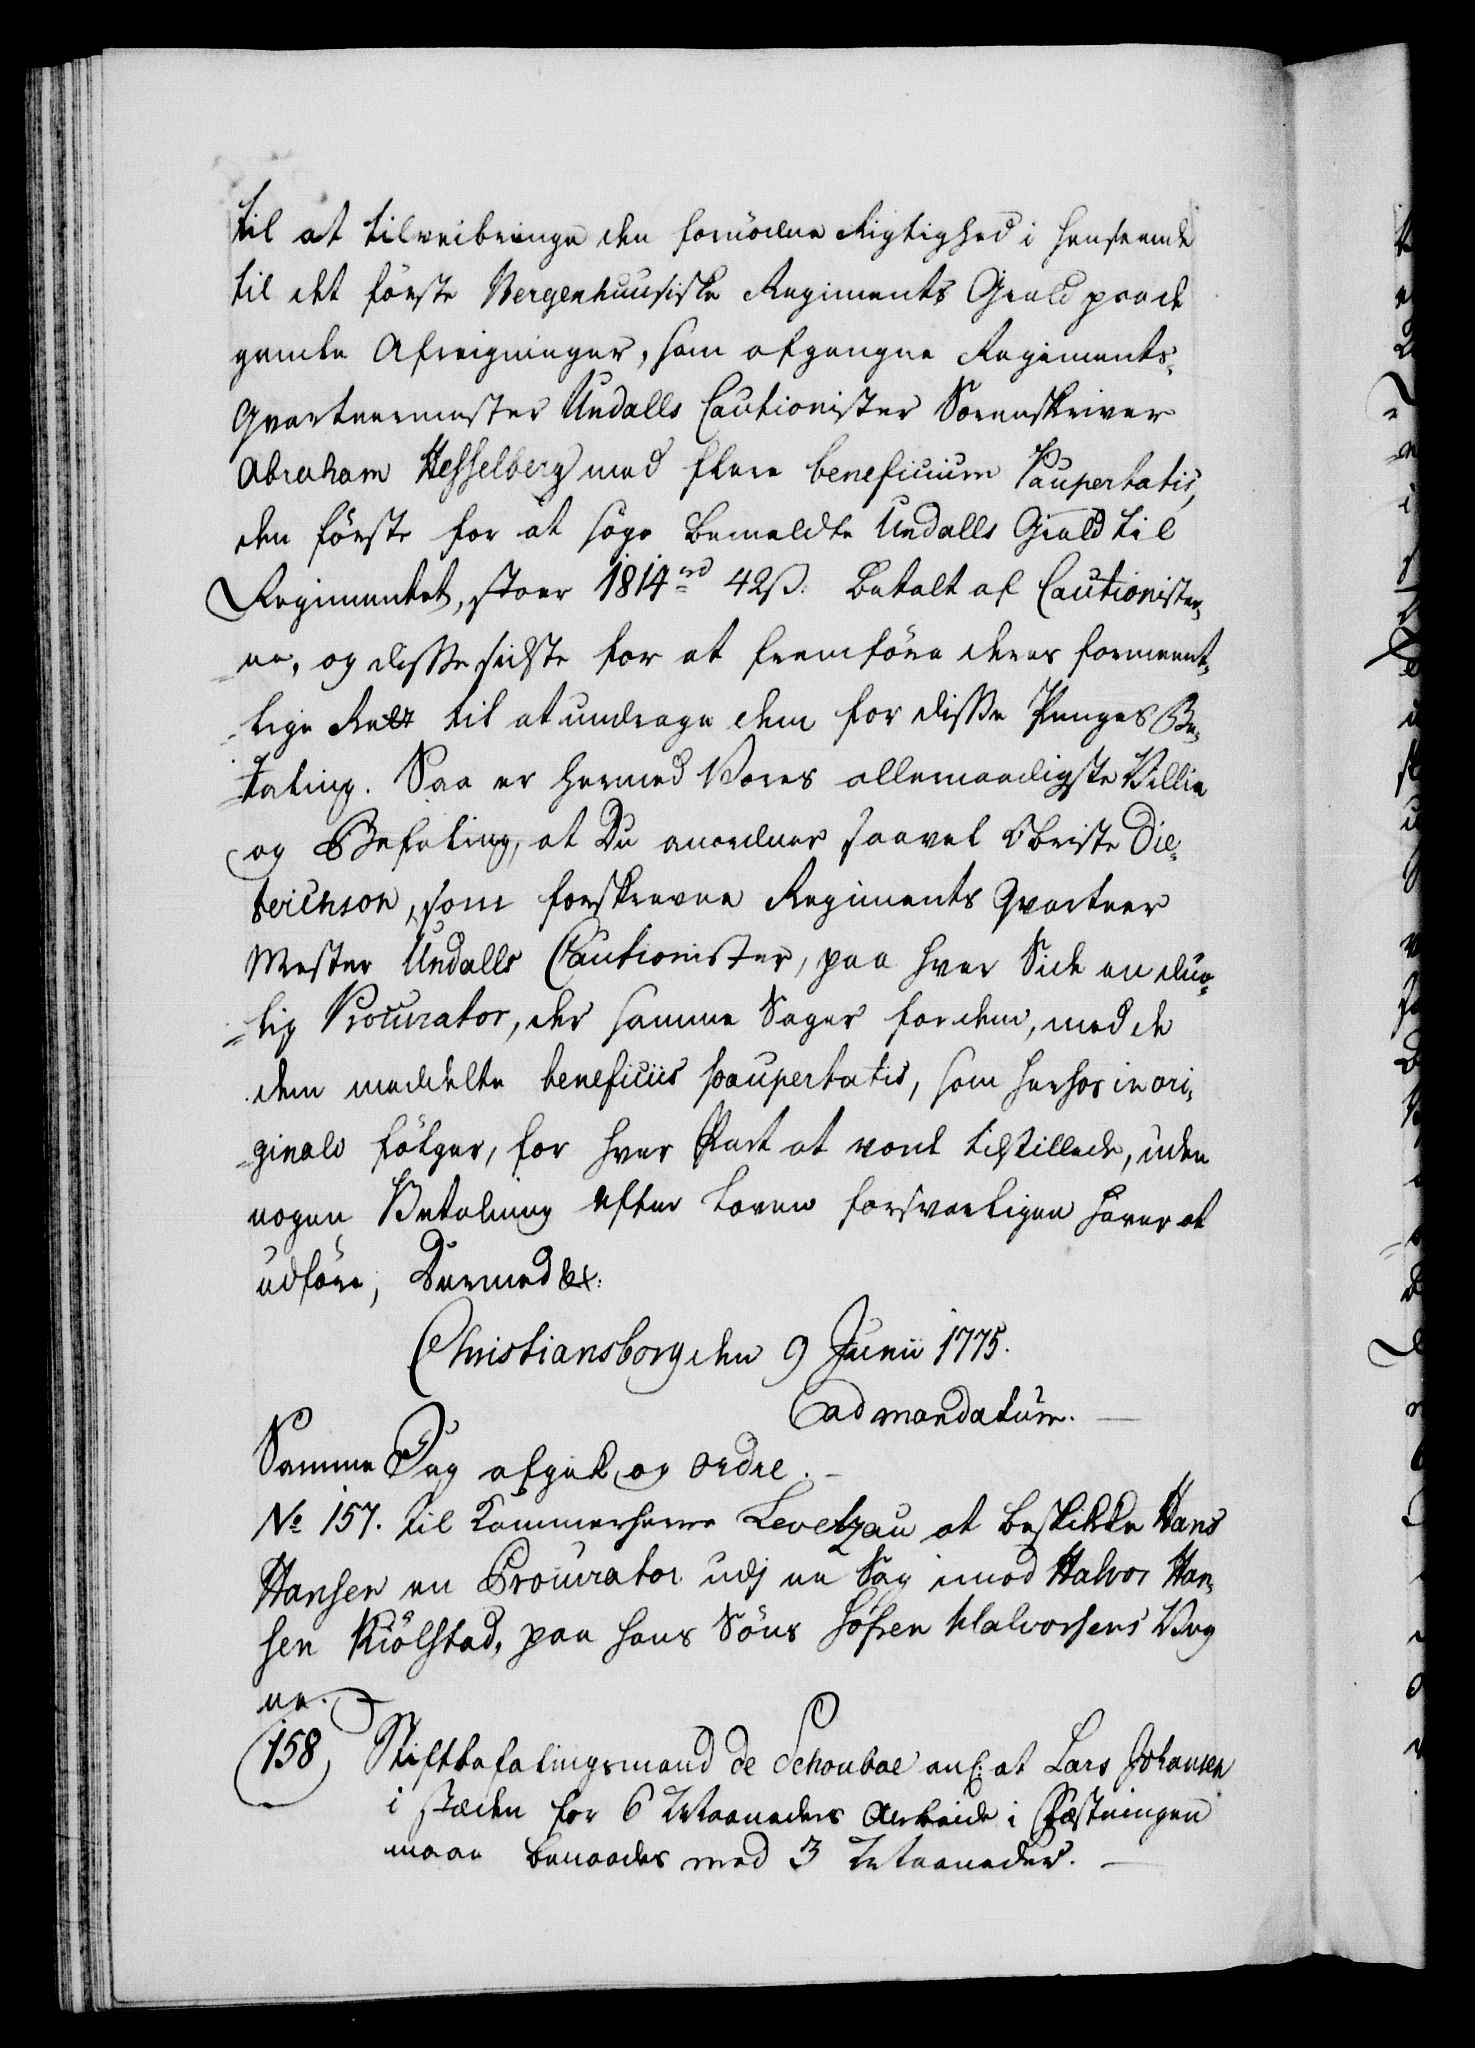 til at tilveibringe den fornödne Rigtighed i Henseende
til det förste Bergenhuusiske Regiments Gield paade
gamle Afreigninger, som afgangne Regiments-
Qvarteermester Undalls Cautionister Sorenskriver
Abraham Hesselberg med flere beneficium Paupertatis,
den förste for at söge bemeldte Undalls Gield til
Regimentet, stoer 1814 rd 42 ß. betalt af Cautionister-
ne, og disse sidste for at fremföre deres formeent-
lige Rett til at undrage dem for disse Penges Be-
taling. Saa er hermed Vores allernaadigste Villie
og Befaling, at Du anordner saavel Obriste Die-
terichson, som forskrevne Regiments Qvarteer
Mester Undalls Cautionister, paa hver Side en due-
lig Procurator, der samme Sager for dem, med de
dem meddelte beneficiis paupertatis, som herhos in ori-
ginali fölger, for hver Part at vorde tilstillede, uden
nogen Betalning efter Loven forsvarligen haver at
udföre, Dermed &c.
Christiansborg den 9 Junii 1775.
ad mandatum.
Samme Dag afgik og Ordre.
No 157. til Kammerherre Levetzau at beskikke Hans
Hansen en Procurator udj en Sag imod Halvor Han-
sen Kiölstad, paa hans Söns Höfren Halvorsens Veg
ne.
158, Stiftbefalingsmand de Schouboe anl: at Lars Johansen
i stæden for 6 Maaneders Arbeide i Fæstningen
maae benaades med 3 Maaneder.